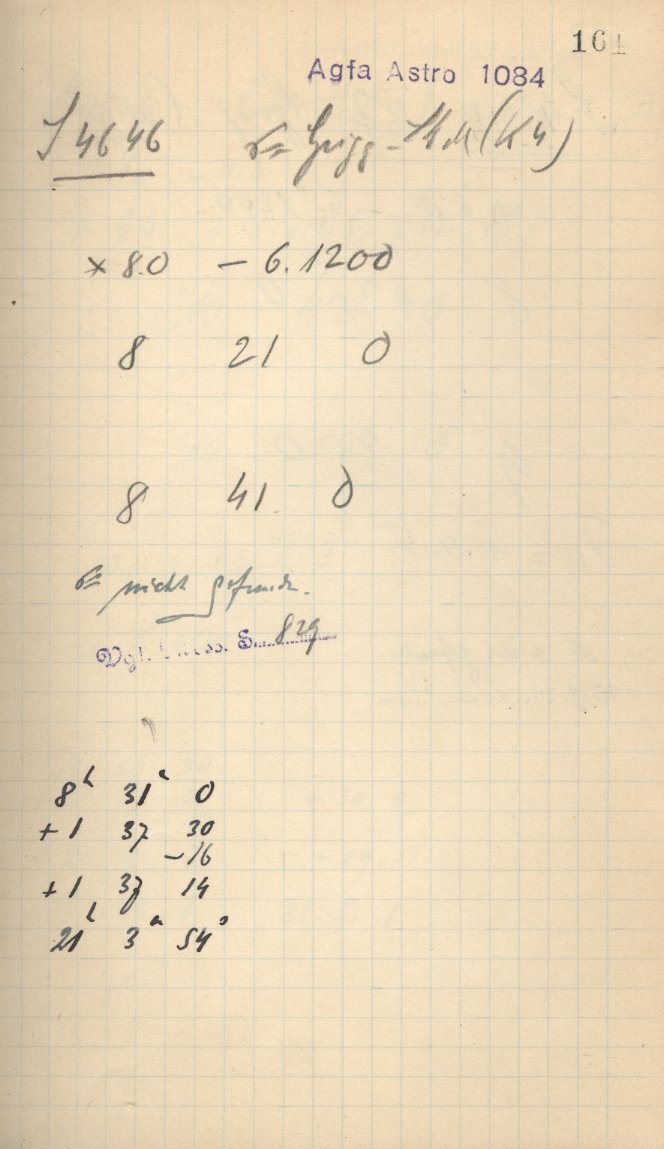 161
Agfa Astro 1084
S 4646 Grigg - (K 4)
× 8.0 - 6.1200
8 21 0
8 41 0
nicht gefunden.
Vgl. S. 829
8h 31m 0
+ 1 37 30
- 16
+ 1 37 14
21h 3m 54s